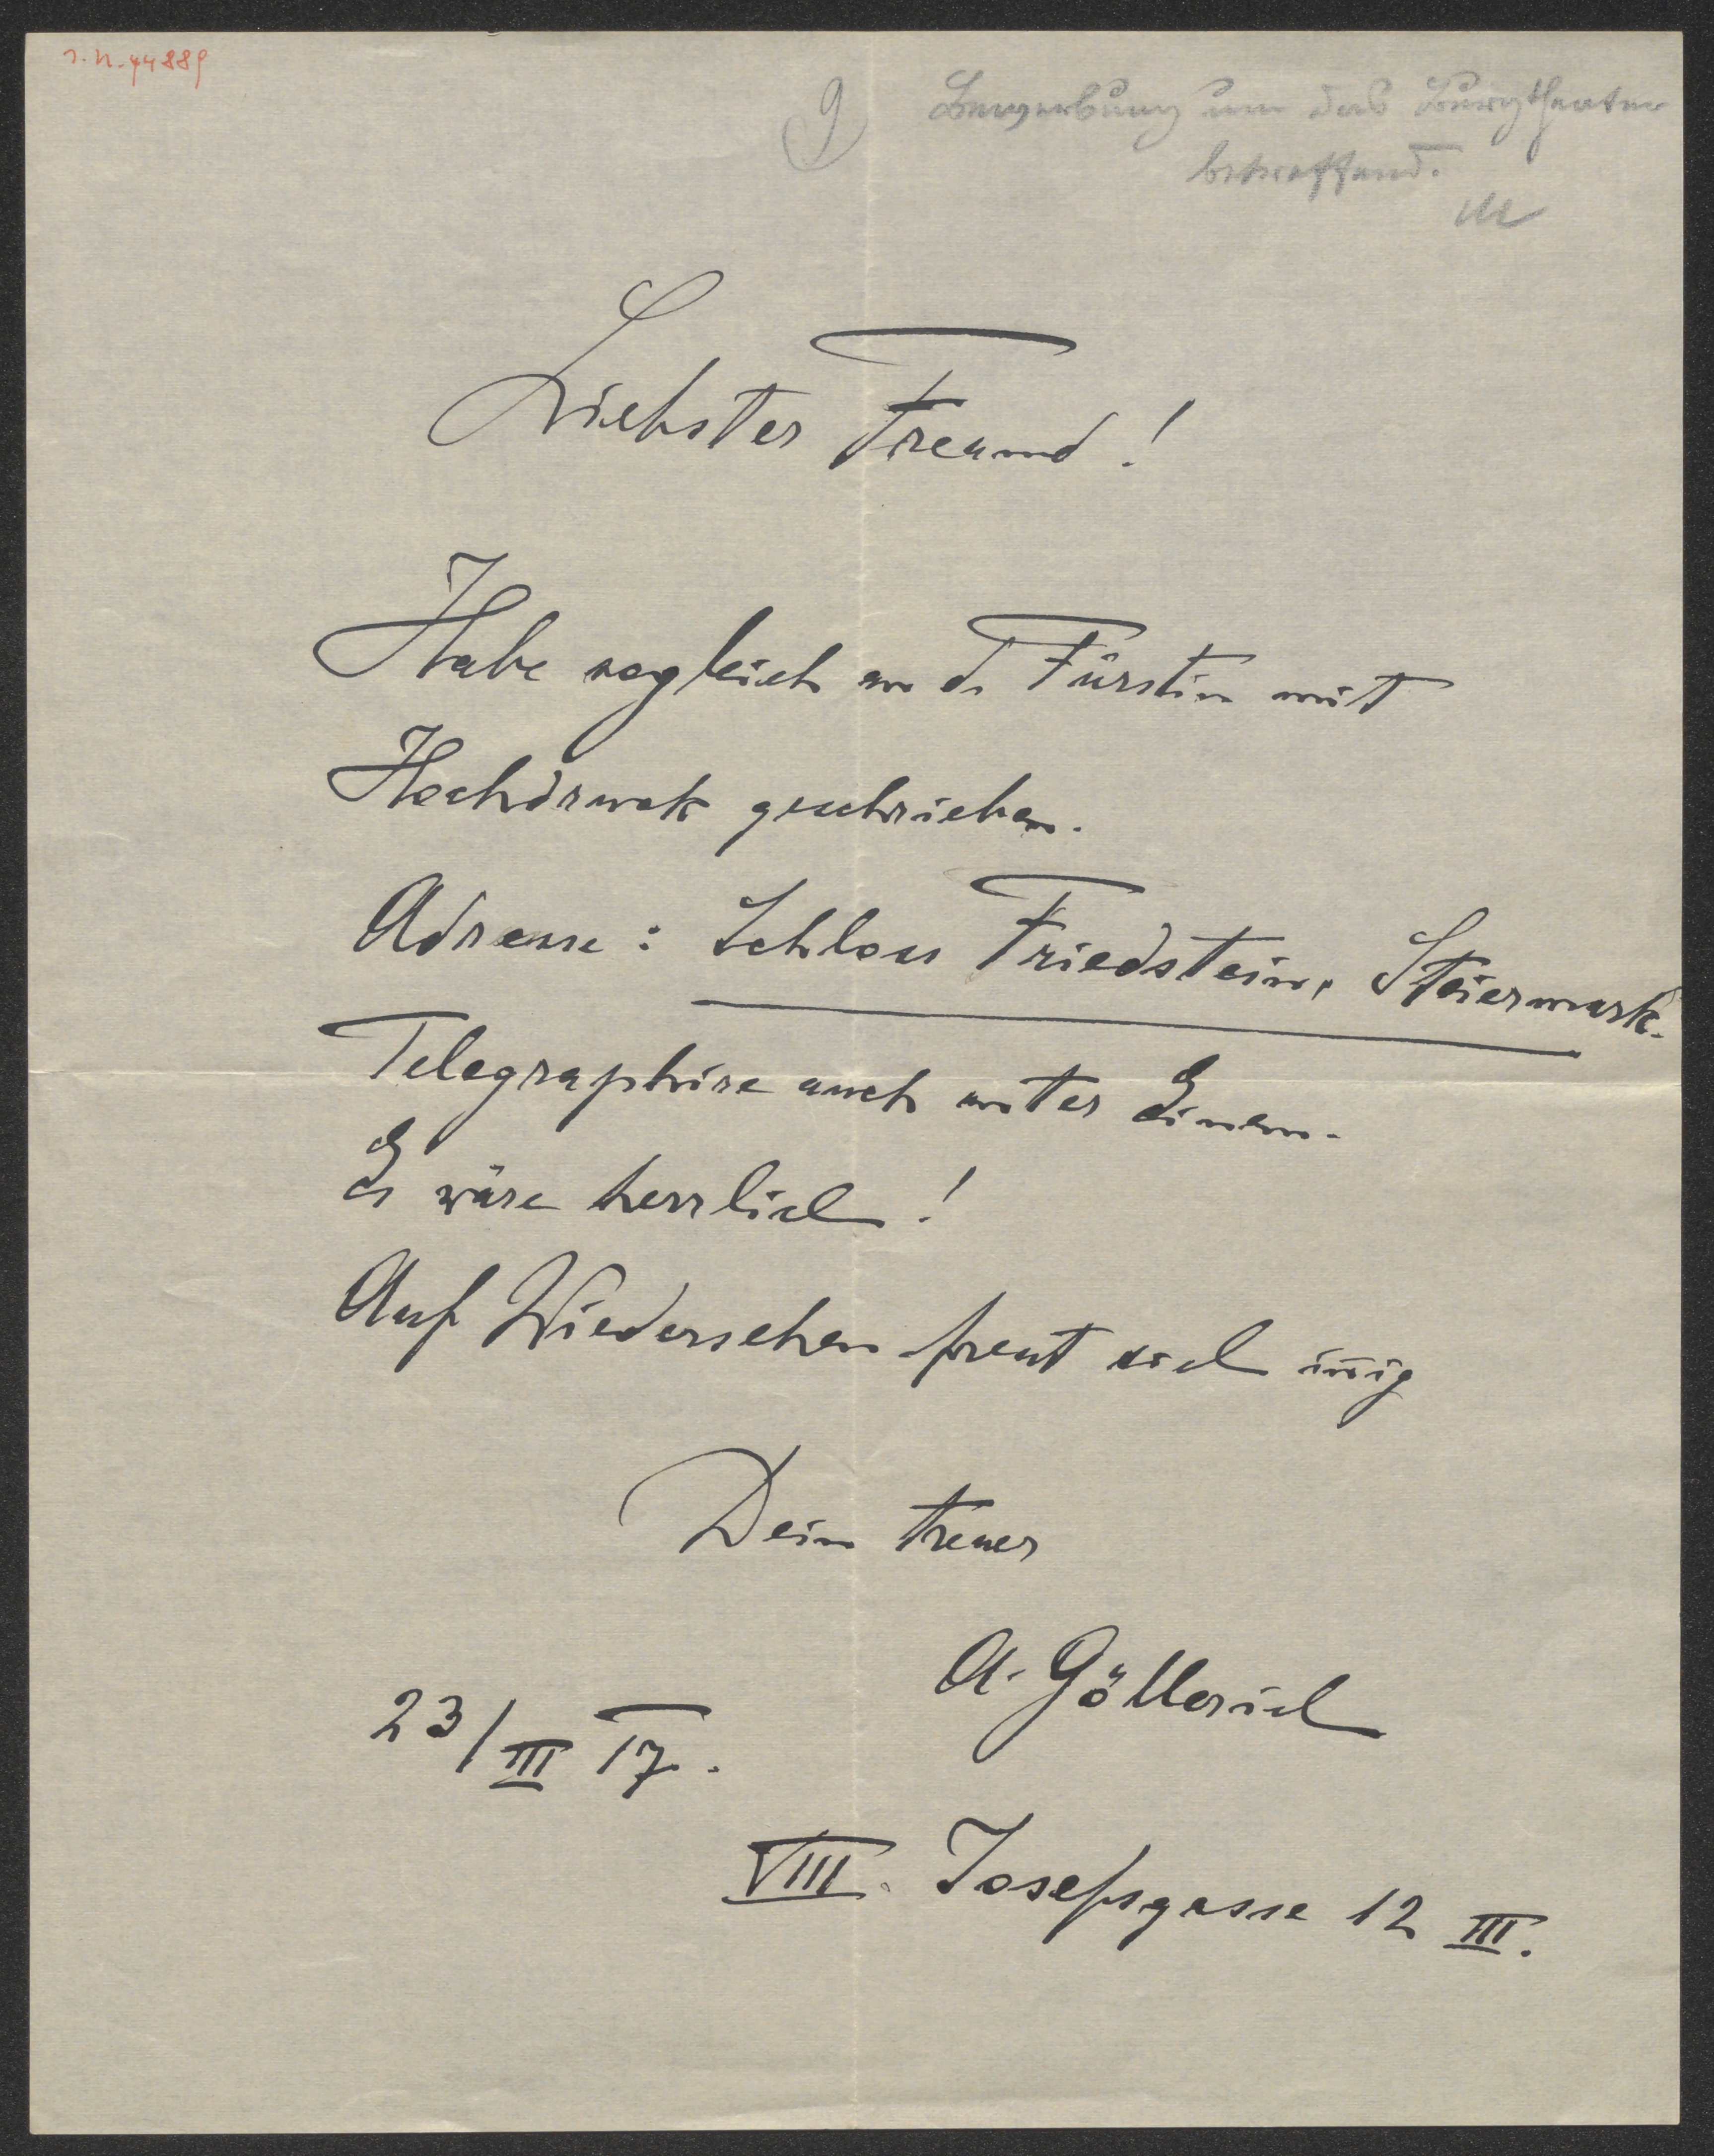 I.N. 44889
9
Bewerbung um das Burgtheater
betreffend.
M
Liebster Freund!
Habe sogleich an d. Fürstin mit
Hochdruck geschrieben.
Adresse: Schloss Friedstein, Steiermark.
Telegraphire auch unter Einem.
Es wäre herrlich!
Auf Wiedersehen freut sich iñig
Dein treuer
A. Göllerich
23/III 17.
VIII. Josefsgasse 12 III.